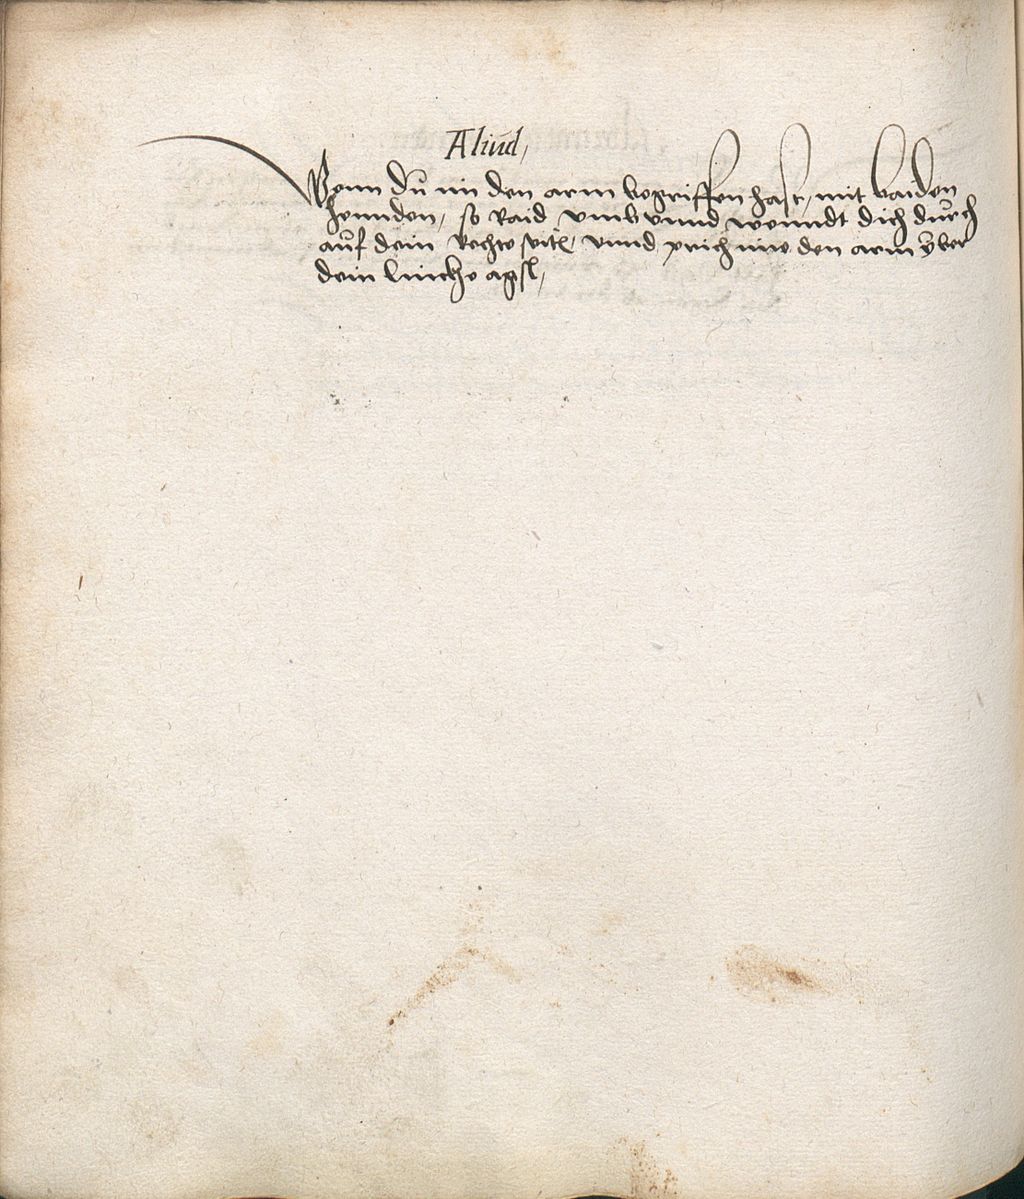 Aliud,
Wenn du im den arm begriffen hast, mit baiden
hennden, so Raid vmb vnnd wenndt dich durch
auf dein Rechte seit, vnnd prich im den arm yber
dein lincke agsl,